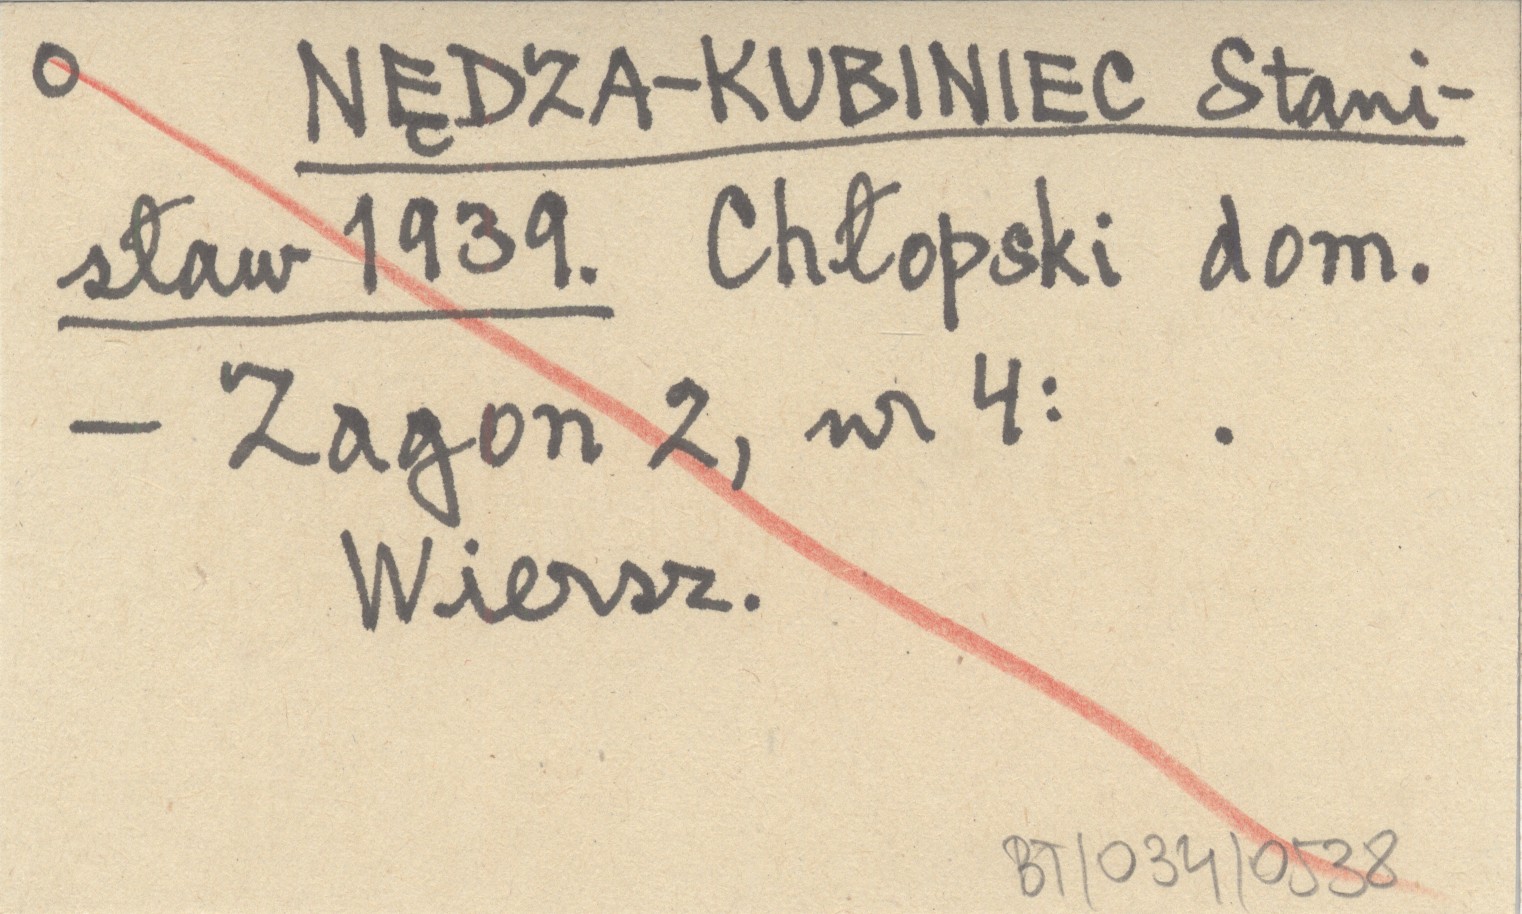 o NĘDZA-KUBINIEC Stani-
sław 1939. Chłopski dom.
– Zagon 2, nr 4: .
Wiersz.
BT/034/0538